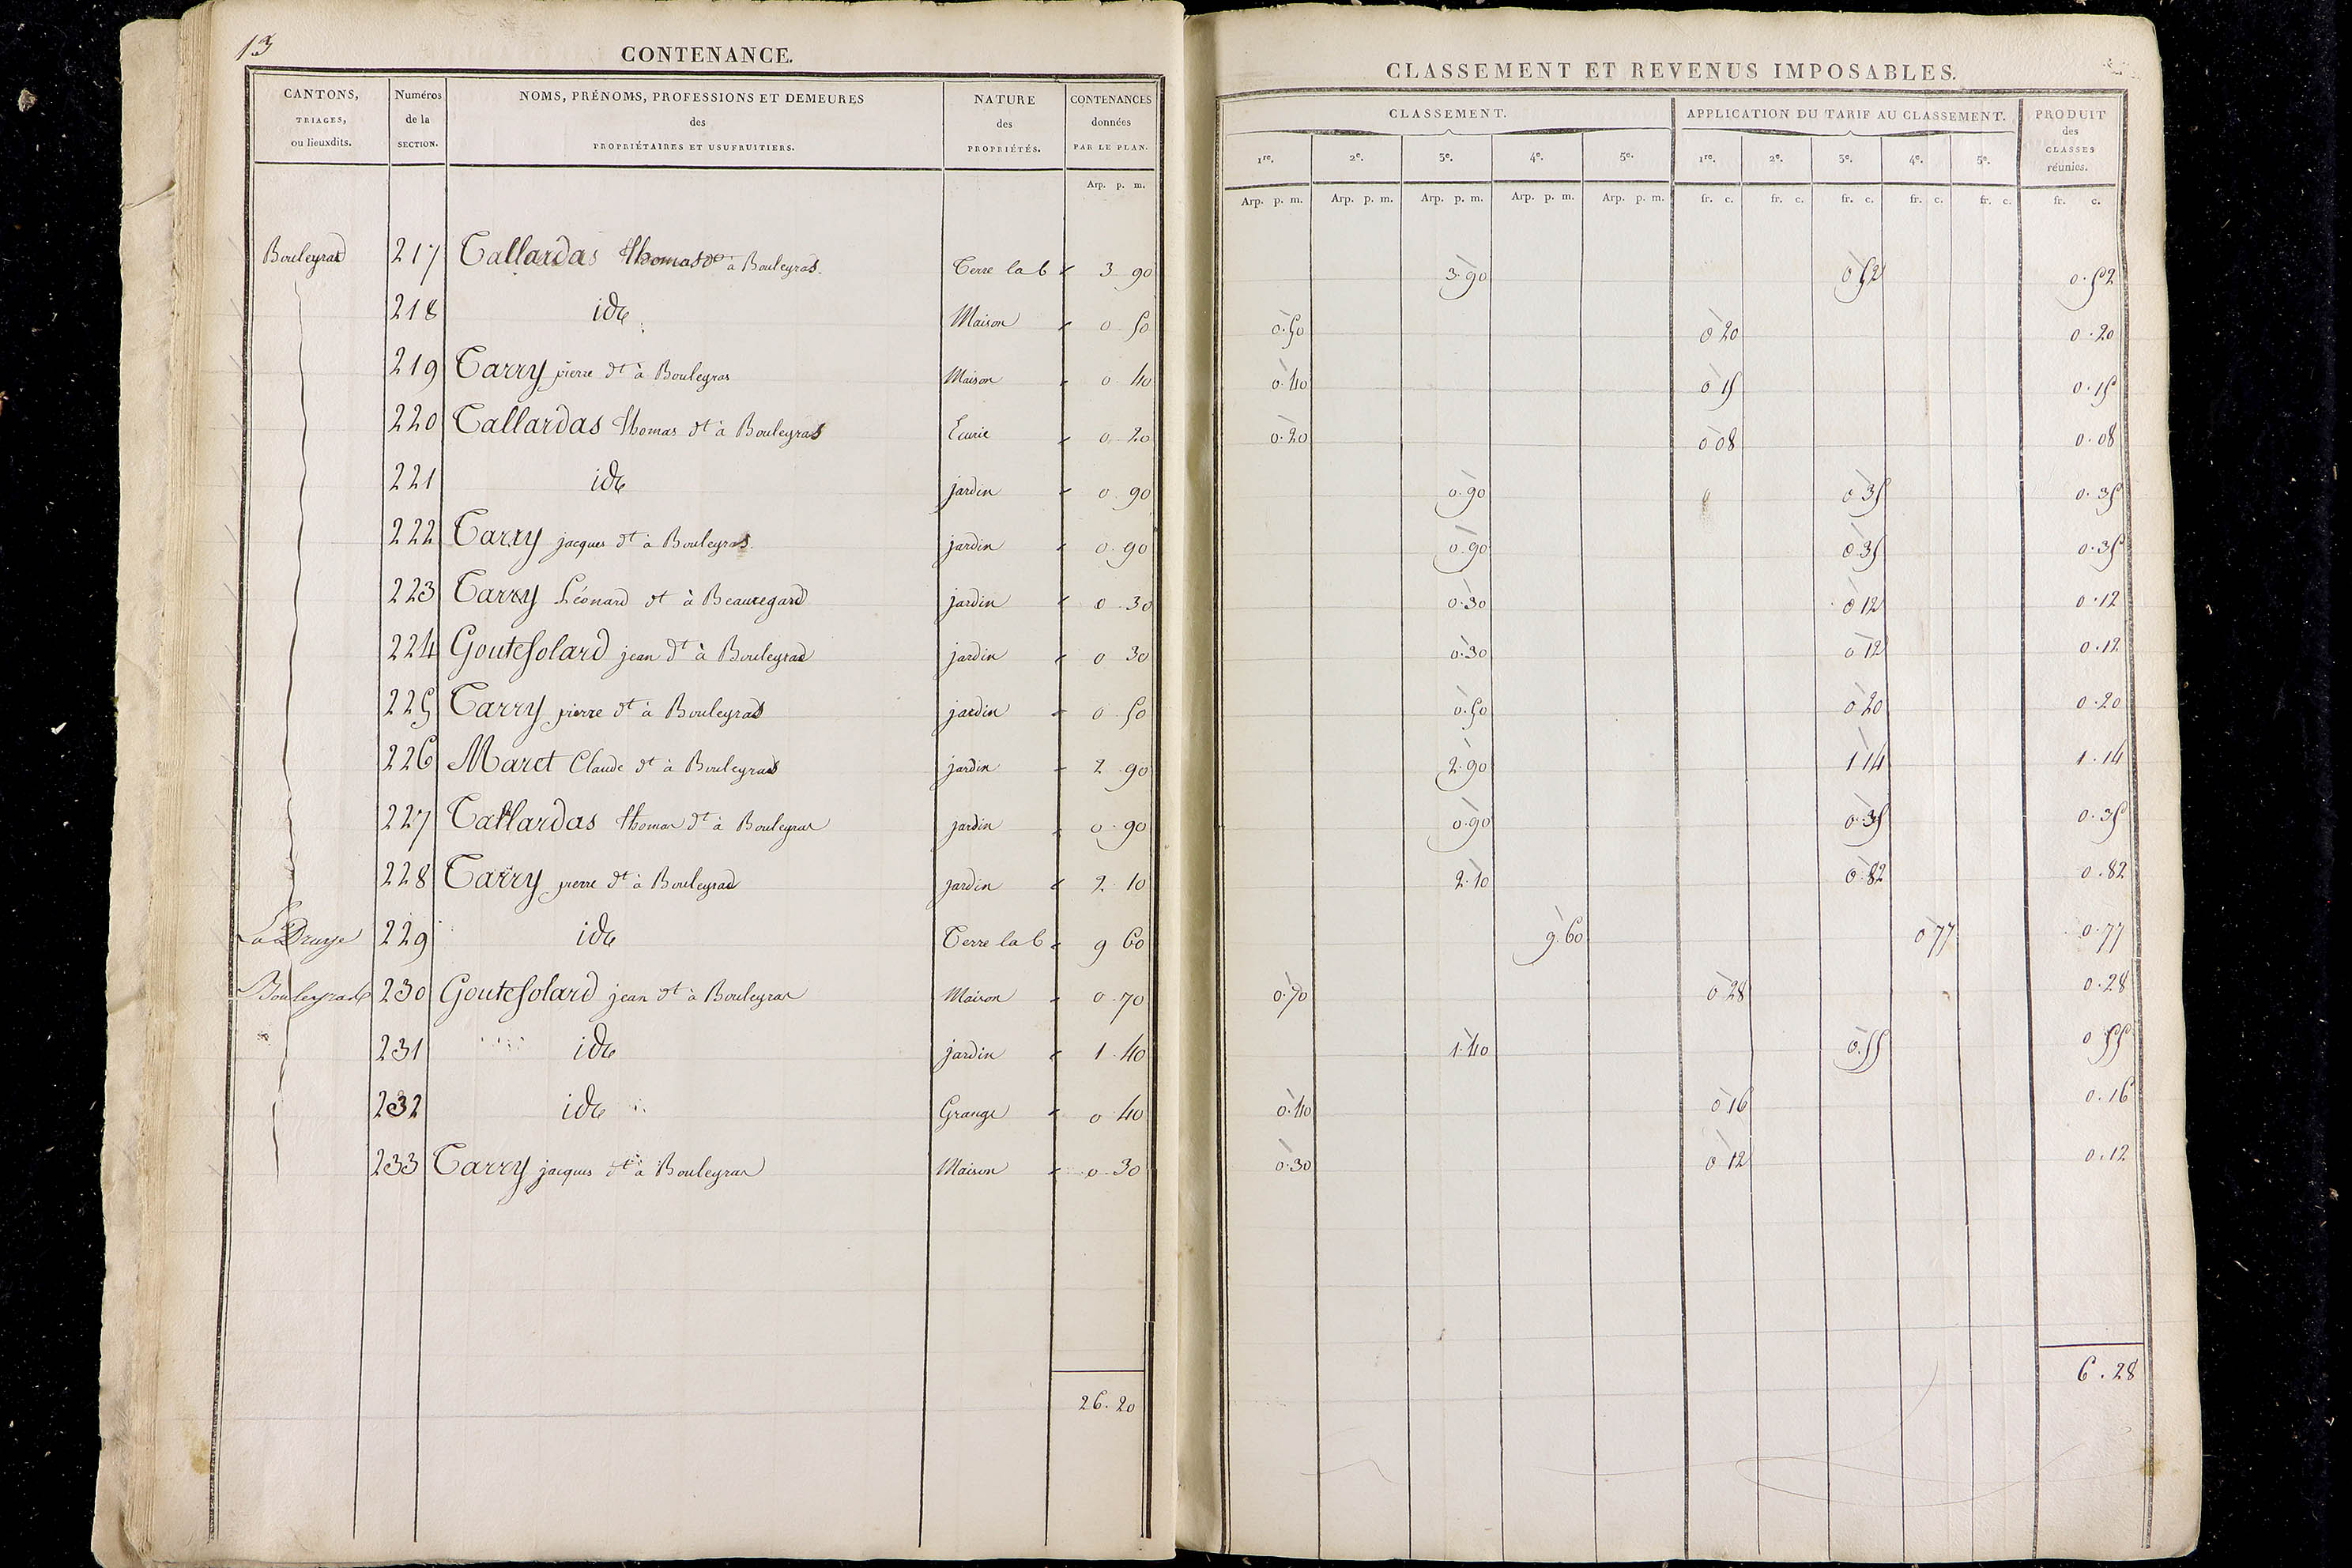 13
CONTENANCE.
CANTONS, TRIAGES, ou lieuxdits. Numéros de la SECTION. NOMS, PRÉNOMS, PROFESSIONS ET DEMEURES des PROPRIÉTAIRES ET USUFRUITIERS. NATURE des PROPRIÉTÉS. CONTENANCES données PAR LE PLAN.
Arp. p. m.
CLASSEMENT ET REVENUS IMPOSABLES.
CLASSEMENT. APPLICATION DU TARIF AU CLASSEMENT. PRODUIT des CLASSES réunies.
1re. 2e. 3e. 4e. 5e. 1re. 2e. 3e. 4e. 5e.
Arp. p. m. Arp. p. m. Arp. p. m. Arp. p. m. Arp. p. m. fr. c. fr. c. fr. c. fr. c. fr. c. fr. c.
Bouleyras 217 Tallardas Thomas dt à Bouleyras. Terre lab 3 90 3.90 0 52 0.52
218 ide Maison 0 50 0.50 0 20 0.20
219 Tarry pierre dt à Bouleyras Maison 0 40 0.40 0 15 0.15
220 Tallardas Thomas dt à Bouleyras Ecurie 0 20 0.20 0 08 0.08
221 ide jardin 0 90 0.90 0 35 0.35
222 Tarry jacques dt à Bouleyras jardin 0 90 0.90 0 35 0.35
223 Tarry Léonard dt à Beauregard jardin 0 30 0.30 0 12 0.12
224 Goutesolard jean dt à Bouleyras jardin 0 30 0.30 0 12 0.12
225 Tarry pierre dt à Bouleyras jardin 0 50 0.50 0 20 0.20
226 Maret Claude dt à Bouleyras jardin 2 90 2.90 1 14 1.14
227 Tallardas Thomas dt à Bouleyras jardin 0 90 0.90 0.35 0.35
228 Tarry pierre dt à Bouleyras jardin 2 10 2.10 0.82 0.82
229 ide Terre lab 9 60 9.60 0 77 0.77
Bouleyras 230 Goutesolard jean dt à Bouleyras Maison 0 70 0.70 0 28 0.28
231 ide jardin 1 40 1.40 0.55 0 55
232 ide Grange 0 40 0.40 0 16 0.16
233 Tarry jacques dt à Bouleyras Maison 0 30 0.30 0 12 0.12
26.20 6.28